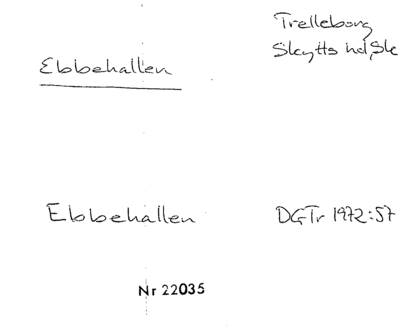 Trelleborg
Skytts hd, Sk
Ebbehallen
Ebbehallen DGTr 1972:57
Nr 22035